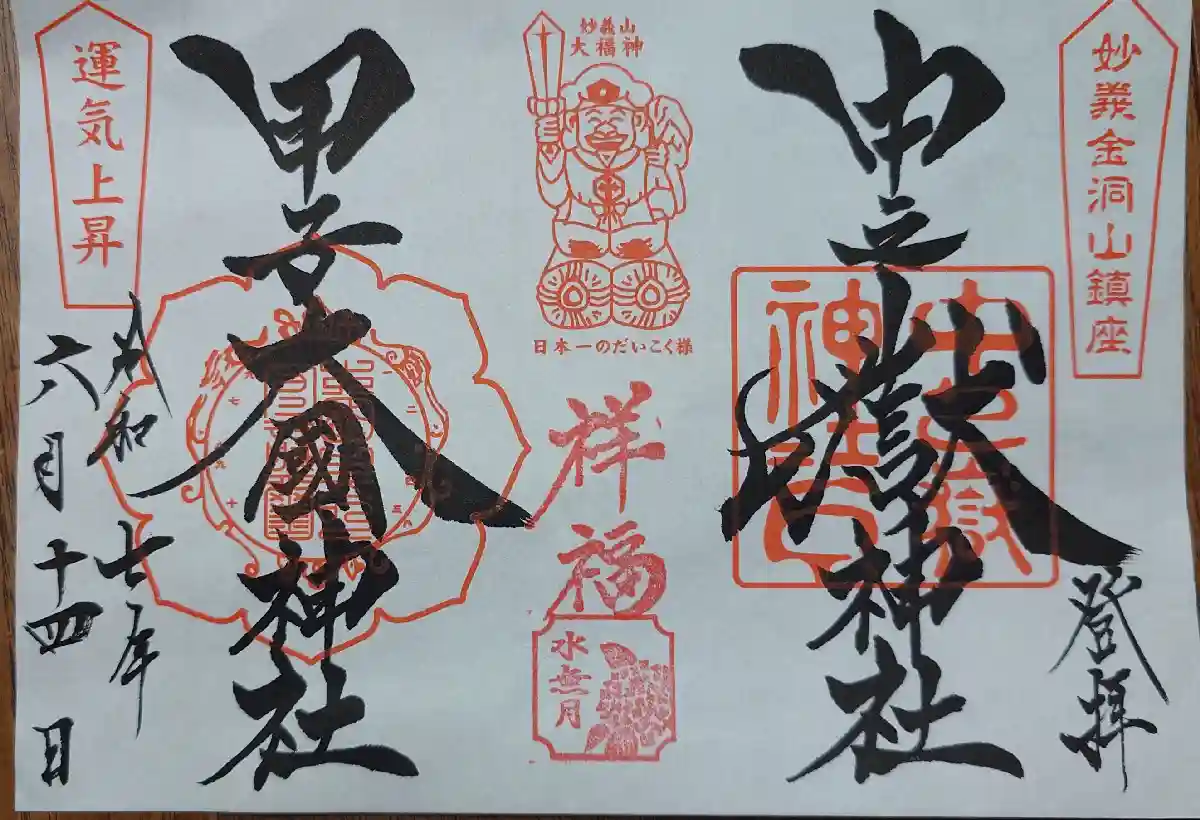 妙義金洞山鎮座
登拝
中之嶽神社
中之嶽
神社印
妙義山
大福神
日本一のだいこく様
祥福
水無月
甲子大國神社
運気上昇
令和七年
六月十四日